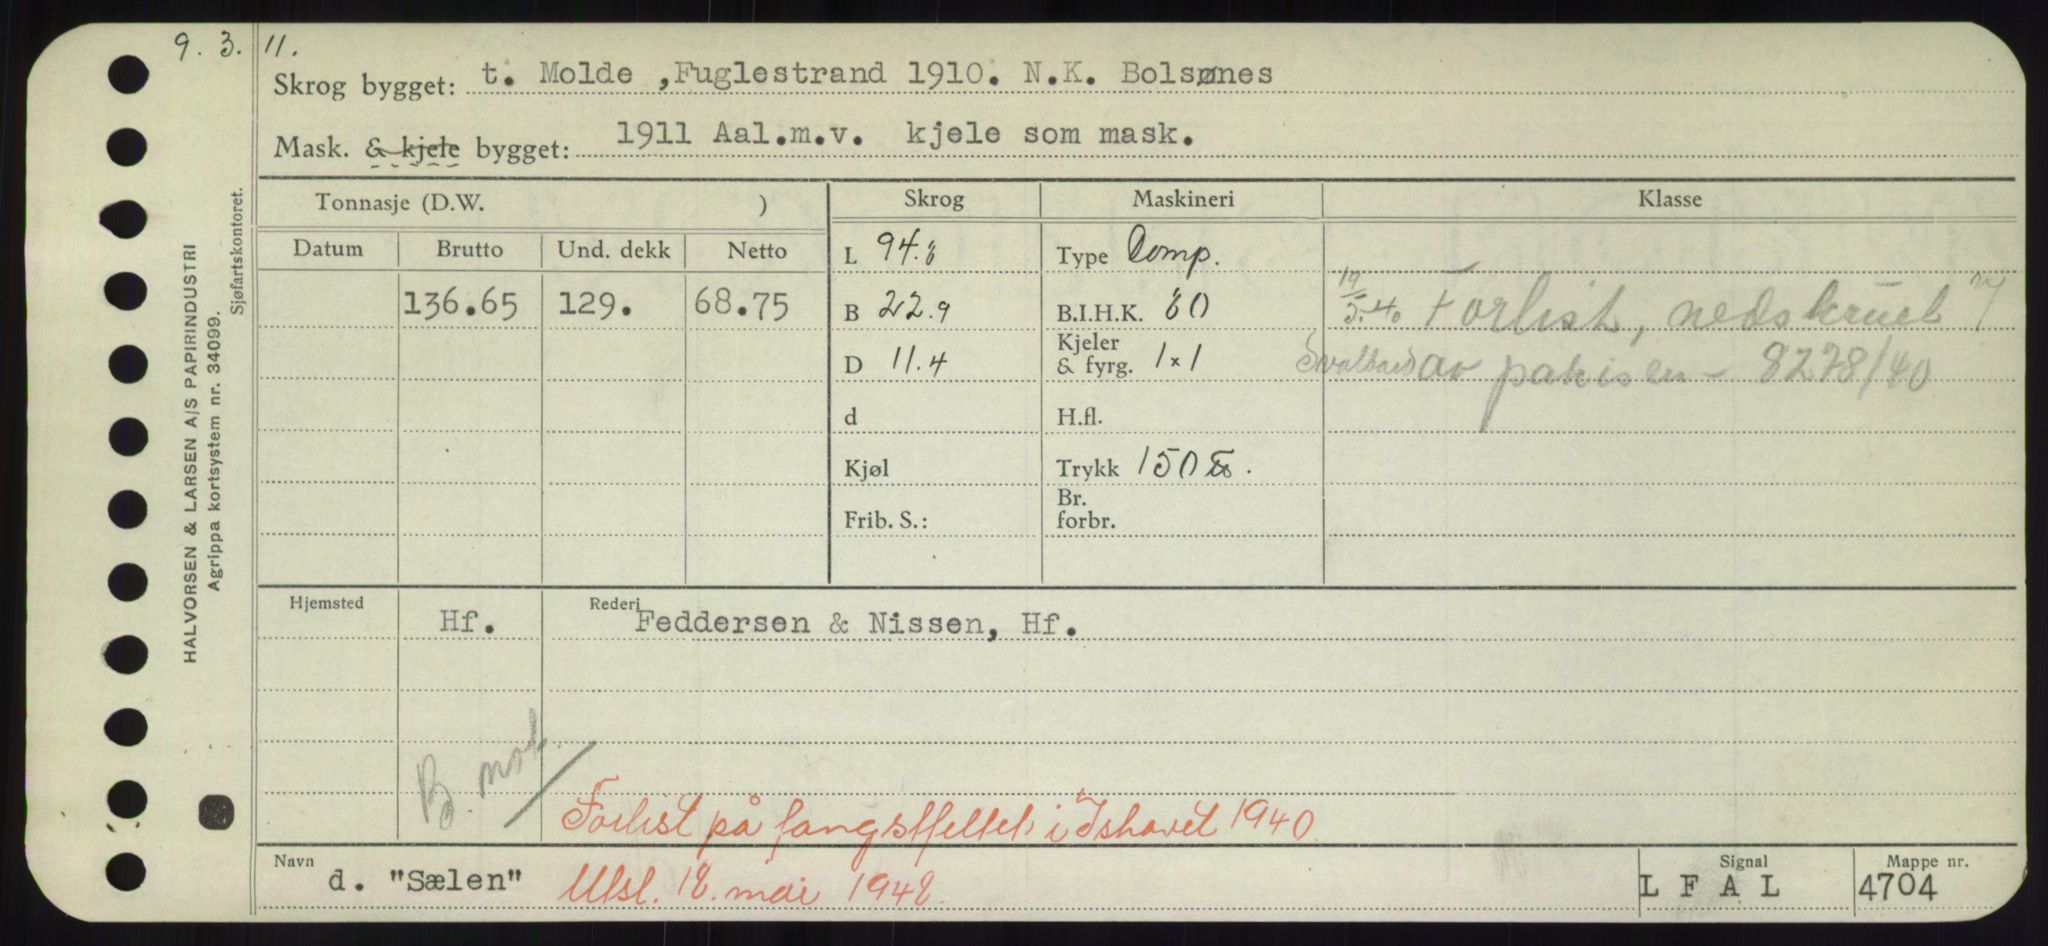 9. 3. 11.
Skrog bygget: t. Molde ,Fuglestrand 1910. N.K. Bolsønes
Mask. & kjele bygget: 1911 Aal.m.v. kjele som mask.
Tonnasje (D.W. ) Skrog Maskineri Klasse
Datum Brutto Und. dekk Netto L 94.8 Type Comp.
136.65 129. 68.75 B 22.9 B.I.H.K. 80 19/5.40 Forlist, nedskrudt v/
D 11.4 Kjeler & fyrg. 1x1 Svalbard av pakisen - 8278/40
d H.fl.
Kjøl Trykk 150
Frib. S.: Br. forbr.
Hjemsted Hf. Rederi Feddersen & Nissen, Hf.
B. mot.
Forlist på fangstfeltet i Ishavet 1940
Navn d. "Sælen" Utsl. 18. mai 1948. Signal L F A L Mappe nr. 4704
HALVORSEN & LARSEN A/S PAPIRINDUSTRI
Agrippa kortsystem nr. 34099.
Sjøfartskontoret.